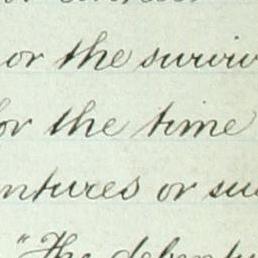 or the surviv
for the time
ntures or su
"The debentu